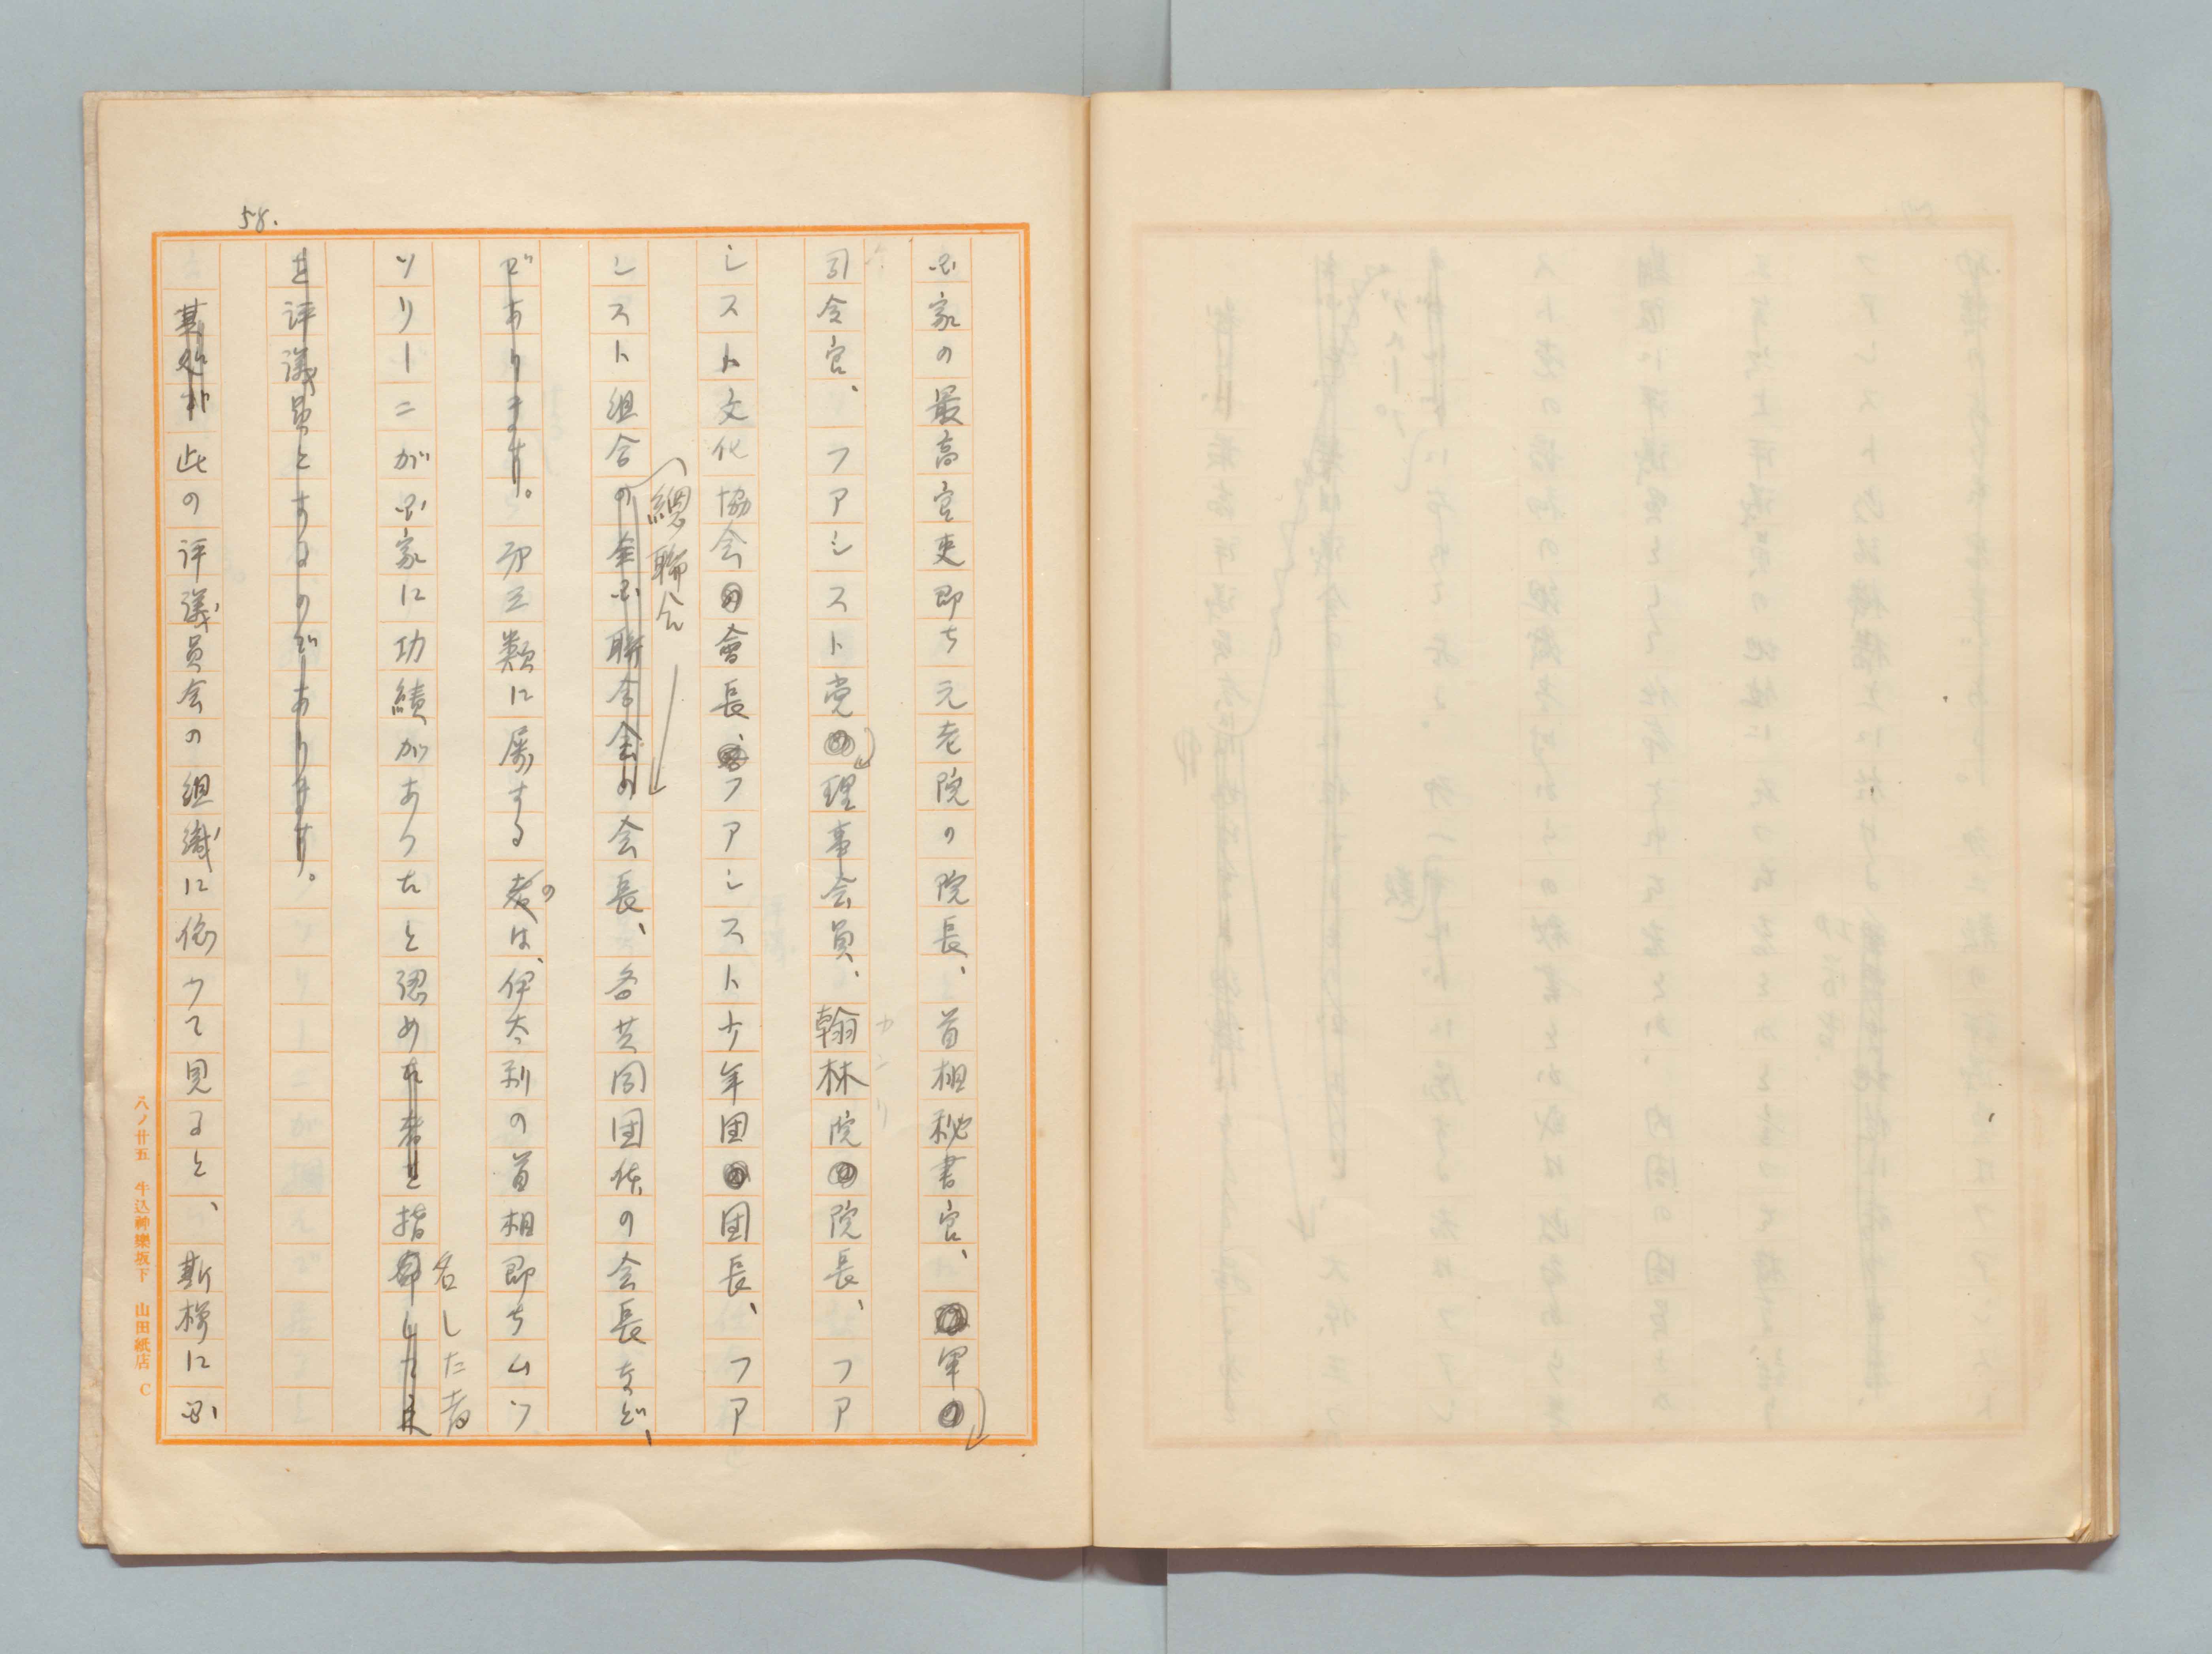 58.
国家の最高官吏即ち元老院の院長、首相秘書官、軍
司令官、ファシスト党理事会員、翰林院院長、ファ
シスト文化協会會長、ファシスト少年団団長、ファ
シスト組合の全国聯合会の会長、各共同団体の会長など、
總聯合
であります。第三類に属する者は、伊太利の首相即ちムツ
の
ソリーニが国家に功績があつたと認めた者を指命して之
名した者
を評議員とするのであります。
其処が此の評議員会の組織に依つて見ると、斯様に国
八ノ廿五 牛込神樂坂下 山田紙店 C